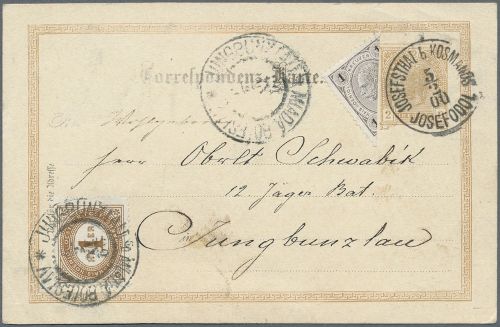 JUNGBUNZLAU MLADÁ BOLESLAV
Correspondenz-Karte.
1
2
JOSEFSTHAL b. KOSMANOS
5
00
JOSEFODOL
Herrn Oberlt Schwabik
12. Jäger Bat.
in Jungbunzlau
die Adresse
1
JUNGBUNZLAU MLADÁ BOLESLAV